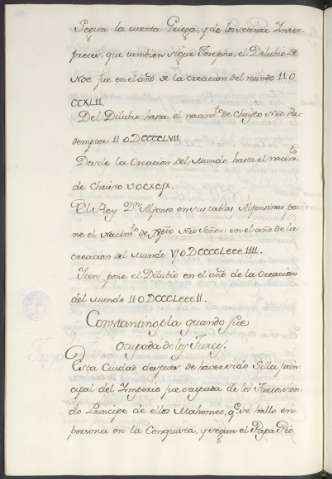 Segun la cuenta Griega, y de los setenta Inter-
pretes, que tambien sigue Josepho, el Diluvio de
Noe fue en el año de la Creacion del mundo II.O
CCXLII.
Del Diluvio hasta el nacim.to de Christo Nro Re-
demptor II O DCCCCLVII.
Desde la Creacion del Mundo hasta el nacim.to
de Christo
El Rey D.n Alfonso en sus tablas Alfonsinas po-
ne el Nacim.to de Christo Nro Señor en el año de la
creacion del Mundo VI O DCCCCLXXXIIII.
Iten pone el Diluvio en el año de la Creacion
del Mundo II O DCCCLXXXII.
Constantinopla quando fue
Ocupada de los Turcos.
Esta Ciudad despues de haver sido Silla prin-
cipal del Imperio fue ocupada de los Turcos sien-
do Principe de ellos Mahomet, que se hallo en
persona en la Conquista, y segun el Papa Pio